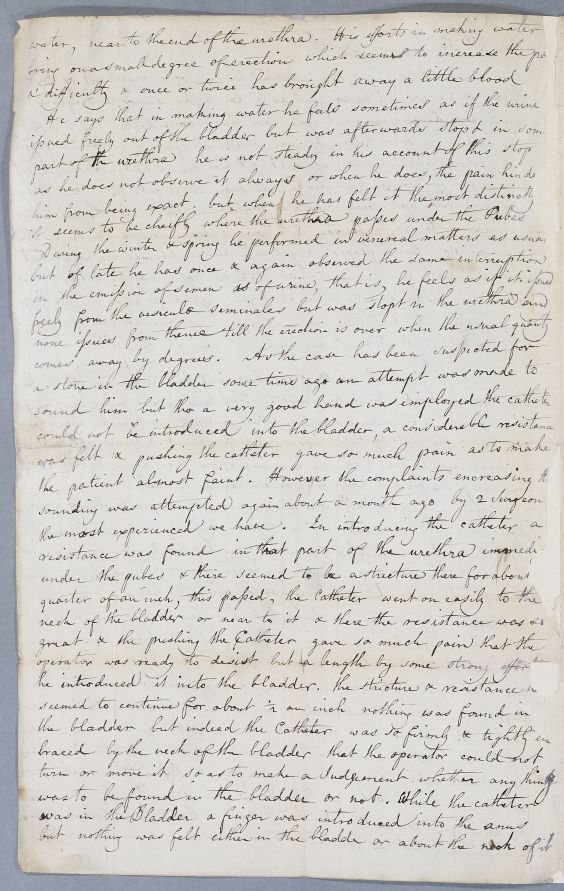 water, near to the end of the urethra. His efforts in making water
bring on a small degree of erection which seems to increase the pa
& difficulty & once or twice has brought away a little blood
He says that in making water he feels sometimes as if the urine
issued freely out of the bladder but was afterwards stopt in som
part of the urethra he is not steady in his account of this stop
as he does not observe it always, or when he does, the pain hinde
him from being exact. but when he has felt it the most distinctly
it seems to be cheifly where the urethra passes under the Pubes
During the winter & spring he performed in venereal matters as usua
but of late he has once & again observed the same interruption
in the emission of semen as of urine, that is, he feels as if it issued
freely from the vesiculæ seminales but was stopt in the urethra and
none issues from thence till the erection is over when the usual quantity
comes away by degrees. As the case has been suspected for
a stone in the bladder some time ago an attempt was made to
sound him but tho a very good hand was employed the catheter
could not be introduced into the bladder, a considerable resistance
was felt & pushing the catheter gave so much pain as to make
the patient almost faint. However the complaints encreasing th
sounding was attempted again about a month ago by 2 surgeon
the most experienced we have. In introducing the catheter a
resistance was found in that part of the urethra immedi
under the pubes & there seemed to be a stricture there for about
quarter of an inch, this passed, the Catheter went on easily to the
neck of the bladder or near to it & there the resistance was so
great & the pushing the Catheter gave so much pain that the
operator was ready to desist but a length by some strong efforts
he introduced it into the bladder. the stricture & resistance
seemed to continue for about ½ an inch nothing was found in
the bladder but indeed the Catheter was so firmly & tightly em
braced by the neck of the bladder that the operator could not
turn or move it so as to make a Judgement whether any thing
was to be found in the bladder or not. While the catheter
was in the Bladder a finger was introduced into the anus
but nothing was felt either in the bladder or about the neck of it